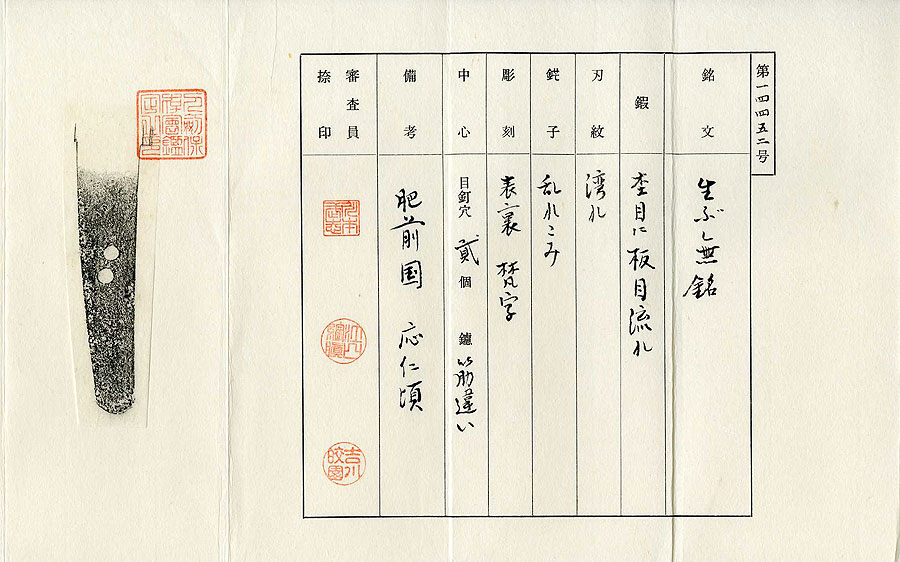 第一四四五二号
銘文
生ぶ無銘
鍜
杢目に板目流れ
刃紋
湾れ
鋩子
乱れこみ
彫刻
表裏 梵字
中心
目釘穴 貳 個 鑢 筋違い
備考
肥前国 応仁頃
審査員
捺印
吉川
皎園